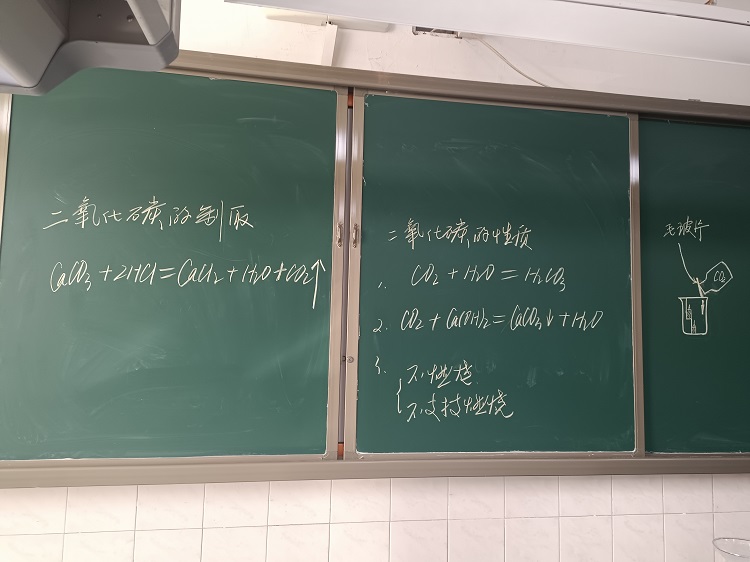 二氧化碳的制取
CaCO₃+2HCl=CaCl₂+H₂O+CO₂↑
二氧化碳的性质
1. CO₂+H₂O=H₂CO₃
2. CO₂+Ca(OH)₂=CaCO₃↓+H₂O
3. 不燃烧
不支持燃烧
毛玻片
CO₂